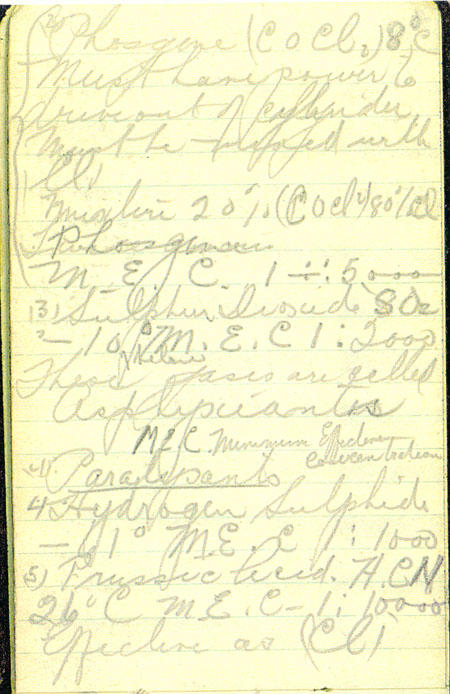 (2) Phosgene (C O Cl2) 8°C
Must have power to
drive out of cylinder
Must be mixed with
Cl)
Mixture 20% (C O Cl2) 80% Cl
Phosgene
M. E. C. 1 ÷ : 5000
(3) Sulphur Dioxide SO2
- 10° M. E. C 1 : 2000
These three gases are called
Asphyxiants
M.E.C. Minimum Effective
Concentration
Paralysants
4 Hydrogen Sulphide
- 61° M. E. C 1 : 1000
5) Prussic Acid. H C N
26° C M. E. C - 1 : 10000
Effective as (Cl)